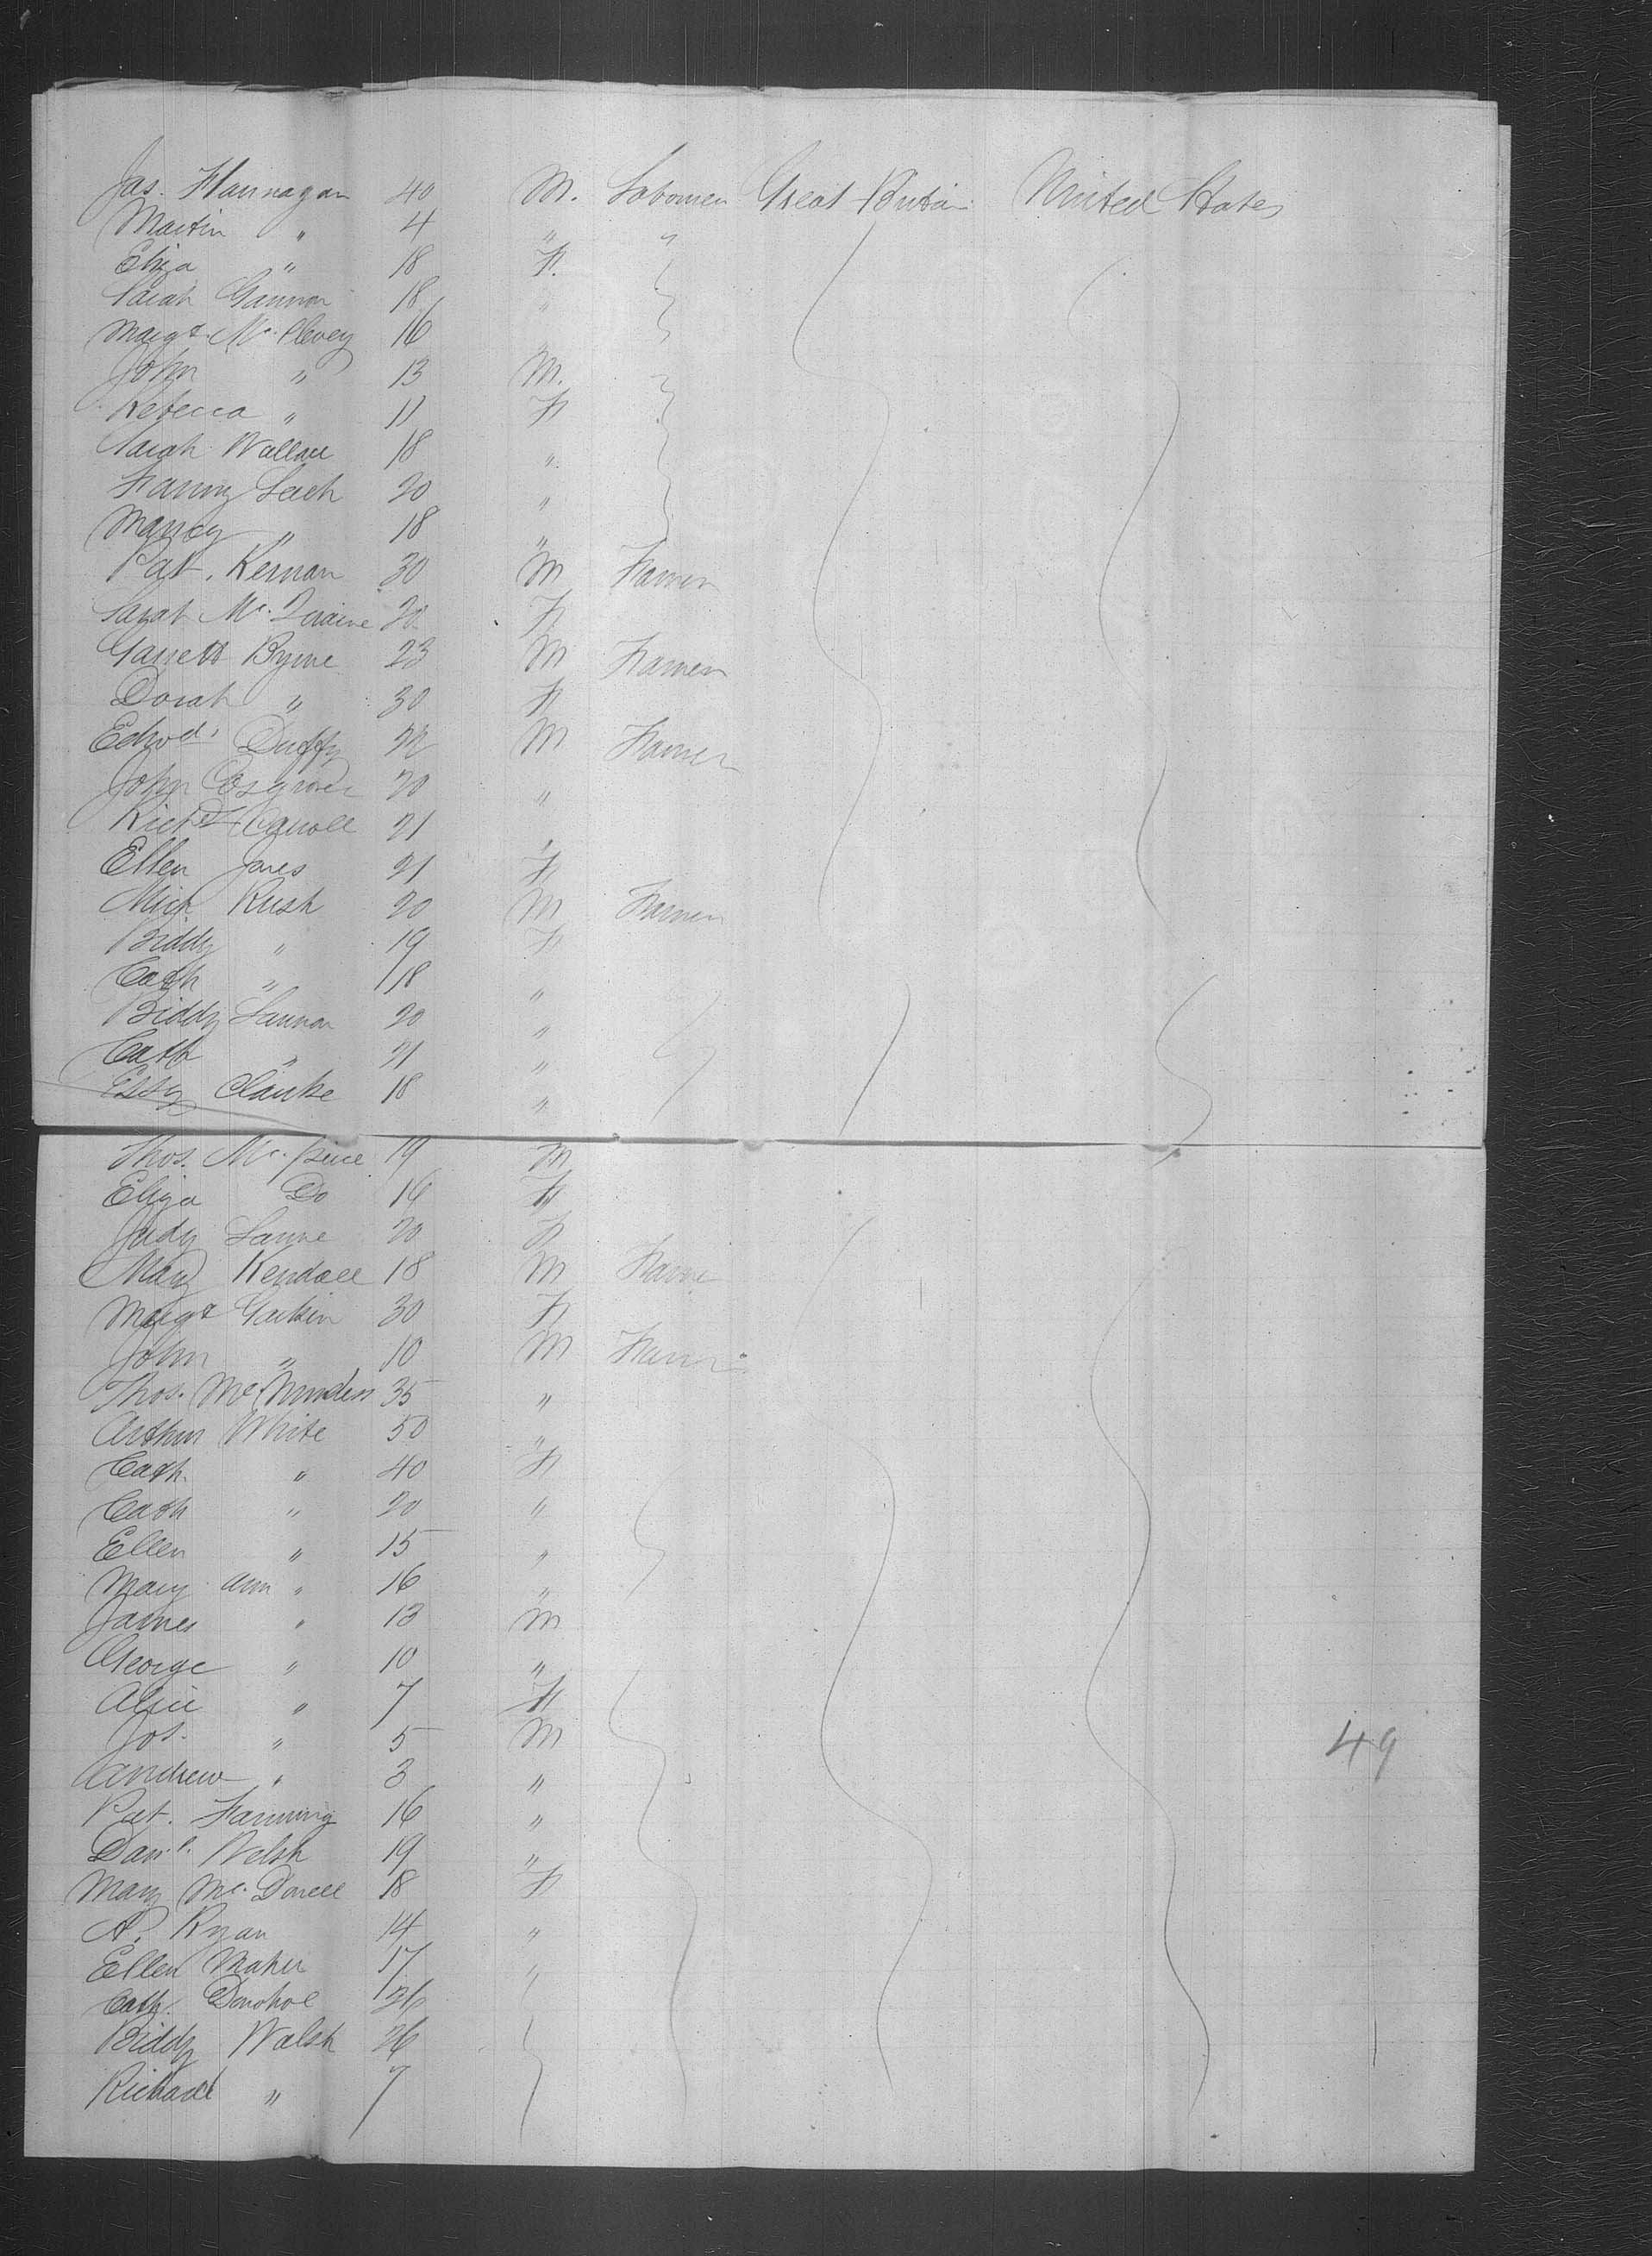 Jas. Flannagan 40 M. Labourer Great Britain United States
Martin " 4 " "
Eliza " 18 F.
Sarah Gannon 18 "
Margt. Mc. Elevey 16 "
John " 13 M.
Rebecca " 11 F
Sarah Wallace 18 "
Fanny Leech 20 "
Nancy " 18 "
Pat. Kernan 30 M Farmer
Sarah Mc. 20 F
Garrett Byrne 23 M Farmer
Dorah " 30 F
Edwd. Duffy 22 M Farmer
John Cosgrove 20 "
Richd. Carroll 21 "
Ellen Jones 21 F
Mich Rush 20 M Farmer
Biddy " 19 F
Cath " 18 "
Biddy Lannon 20 "
Cath " 21 "
Essy Clarke 18 "
Thos. Mc. 19 M
Eliza Do 16 F
Judy Lanne 20 F
Mary Kendall 18 M Farmer
Margt Garkin 30 F
John " 10 M Farmer
Thos. Mc 35 "
Arthur White 50 "
Cath. " 40 F
Cath " 20 "
Ellen " 15 "
Mary Ann " 16 "
James " 13 M
George " 10 "
Alice " 7 F
Jos. " 5 M
Andrew " 3 "
Pat. Fanning 16 "
Danl. Welsh 19 "
Mary Mc. Donell 18 F
A. Ryan 14 "
Ellen Maher 17 "
Cath. Donohoe 26
Biddy Walsh 26
Richard " 7
49